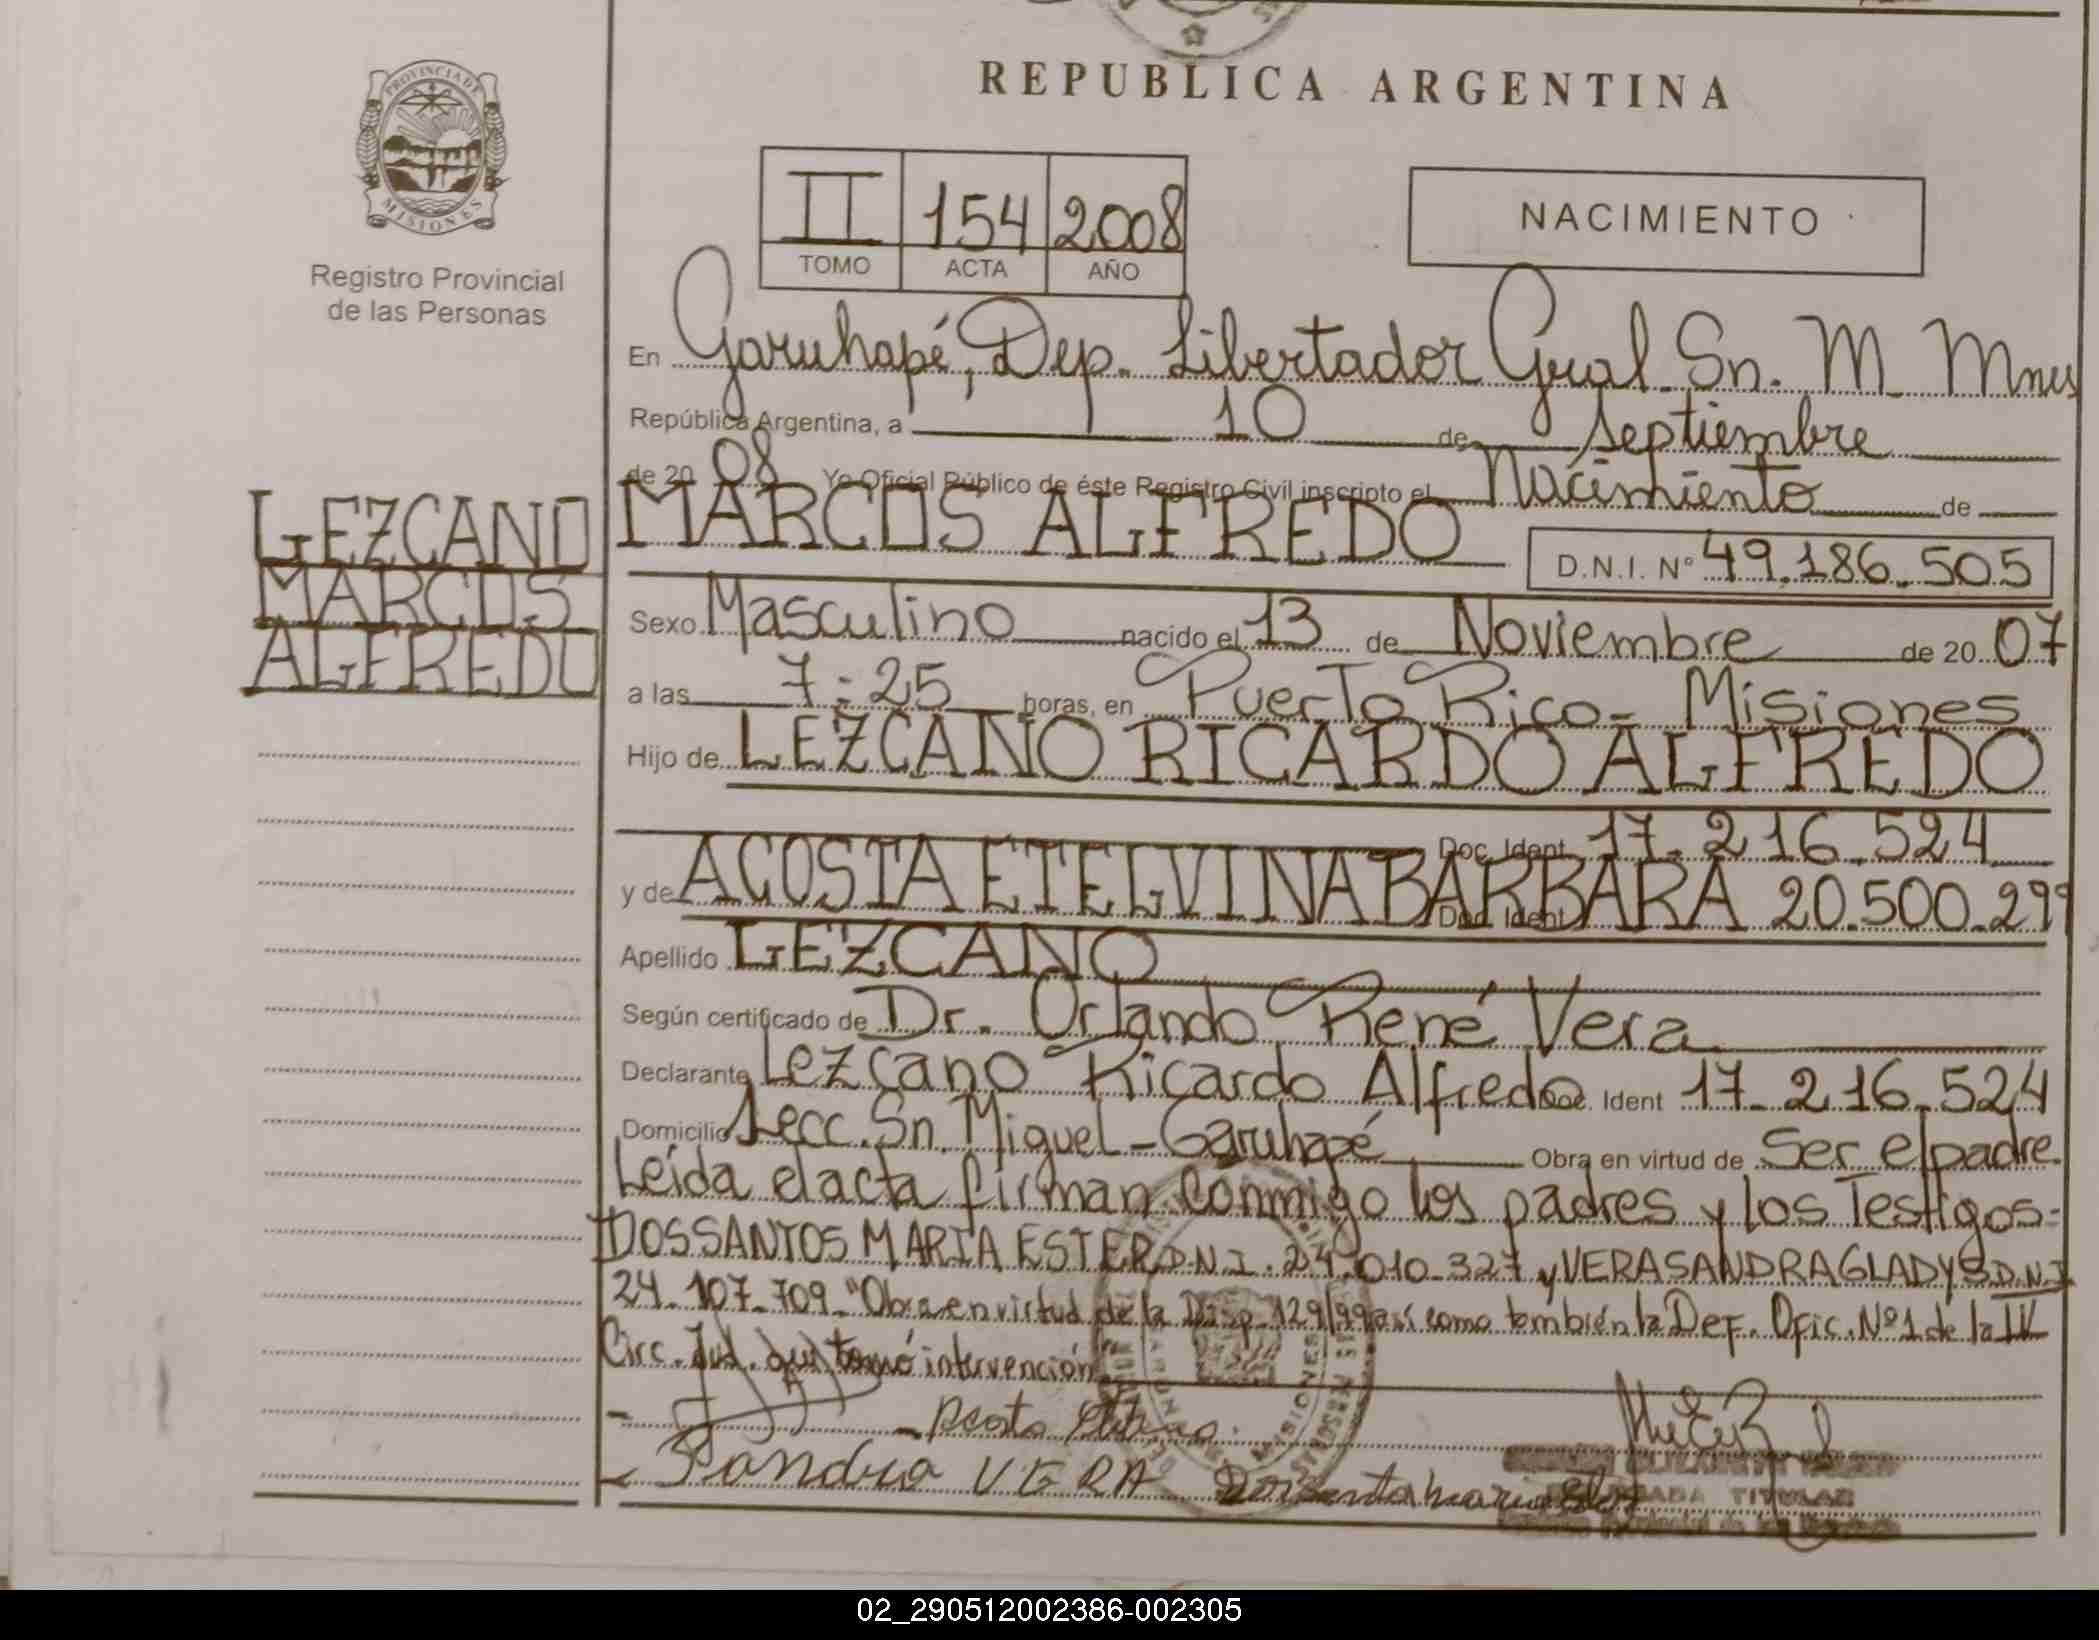 REPUBLICA ARGENTINA
PROVINCIA DE
MISIONES
Registro Provincial
de las Personas
II 154 2008
TOMO ACTA AÑO
NACIMIENTO
En Garuhapé, Dep. Libertador Gral. Sn. M. Mnes
República Argentina, a 10 de septiembre
de 20 08 Yo Oficial Público de éste Registro Civil inscripto el Nacimiento de
LEZCANO
MARCOS
ALFREDO
MARCOS ALFREDO D.N.I. Nº 49.186.505
Sexo Masculino nacido el 13 de Noviembre de 20 07
a las 7:25 horas, en Puerto Rico - Misiones
Hijo de LEZCANO RICARDO ALFREDO
Doc. Ident 17.216.524
y de ACOSTA ETELVINA BARBARA Doc. Ident 20.500.299
Apellido LEZCANO
Según certificado de Dr. Orlando René Vera
Declarante Lezcano Ricardo Alfredo Doc. Ident 17.216.524
Domicilio Secc. Sn. Miguel - Garuhapé Obra en virtud de Ser el padre.
Leída el acta firman conmigo los padres y los Testigos:
DOSSANTOS MARIA ESTER D.N.I. 24.010.327 y VERA SANDRA GLADYS D.N.I
24.107.709. "Obra en virtud de la Disp. 129/99 así como también la Def. Ofic. Nº1 de la IV
Circ. Jud. que tomó intervención
Sandra VERA
MISIONES
TITULAR
02_290512002386-002305